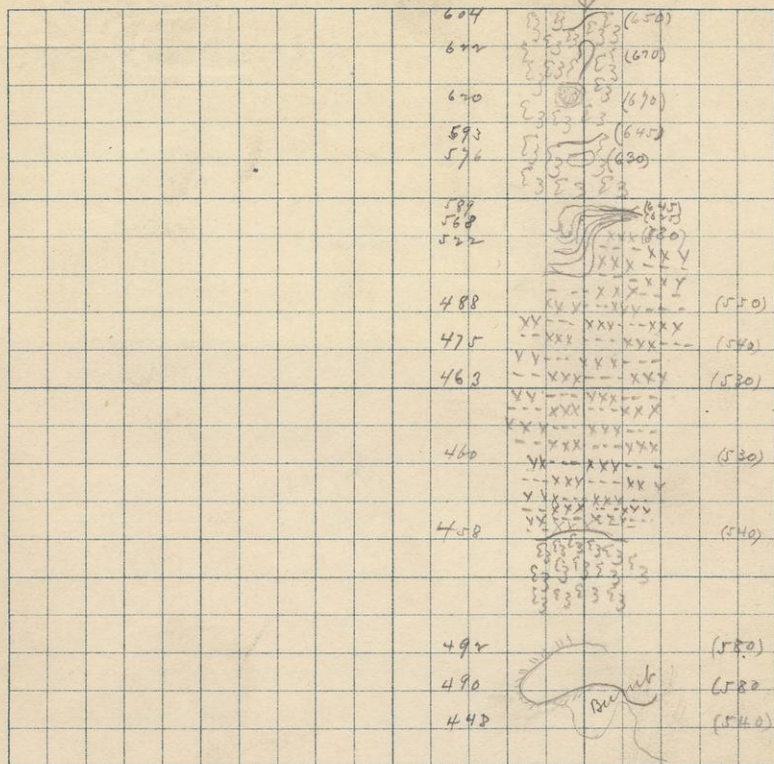 604 (650)
622 (670)
620 (670)
593 (645)
576 (630)
589 (645)
568 (625)
522
488 (550)
475 (540)
463 (530)
460 (530)
458 (540)
492 (580)
490 (580
Burnt
448 (540)